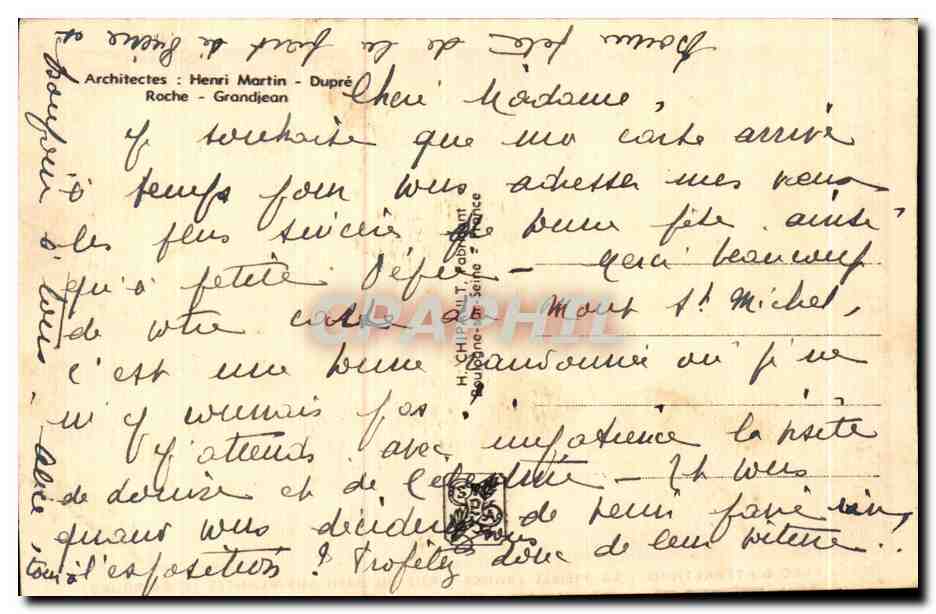 Bonne fête de la part de et
Architectes : Henri Martin - Dupré
Roche - Grandjean
Cheri Madame,
J' souhaite que ma carte arrive
à temps pour vous adresser mes vœux
les plus sincères, de bonne fête ainsi
qu'à petite - Merci beaucoup
de votre carte du Mont St Michel,
c'est une bonne randonnée où j'ne
m'y connais pas.
J'attends avec impatience la visite
de Louise et de Celestine - Et vous
quand vous décidez vous de venir faire
à l'exposition ? Profitez donc de leur voiture !
Bonjour à tous - Alice,
H. CHIPAULT, Fabricant
Boulogne-sur-Seine - France
CPAPHIL